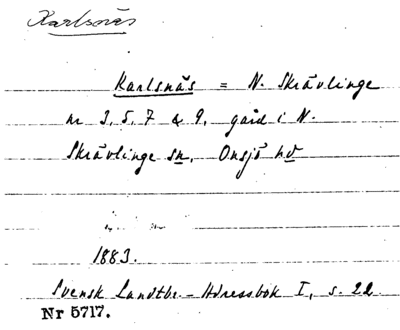 Karlsnäs
Karlsnäs = N. Skrävlinge
nr 3, 5, 7 & 9, gård i N.
Skrävlinge sn, Onsjö hd
1883.
Svensk Landtbr.-Adressbok I, s. 22
Nr 5717.